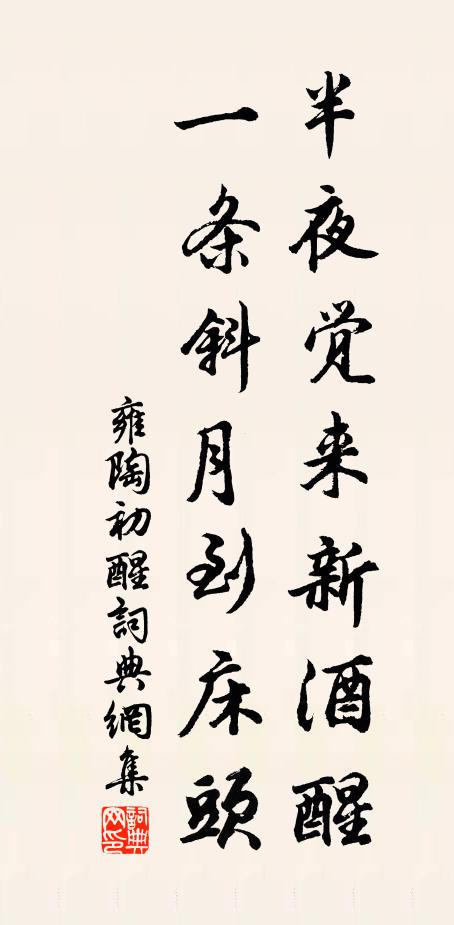 半夜觉来新酒醒
一条斜月到床頭
雍陶初醒詞典網集
詞典
网印